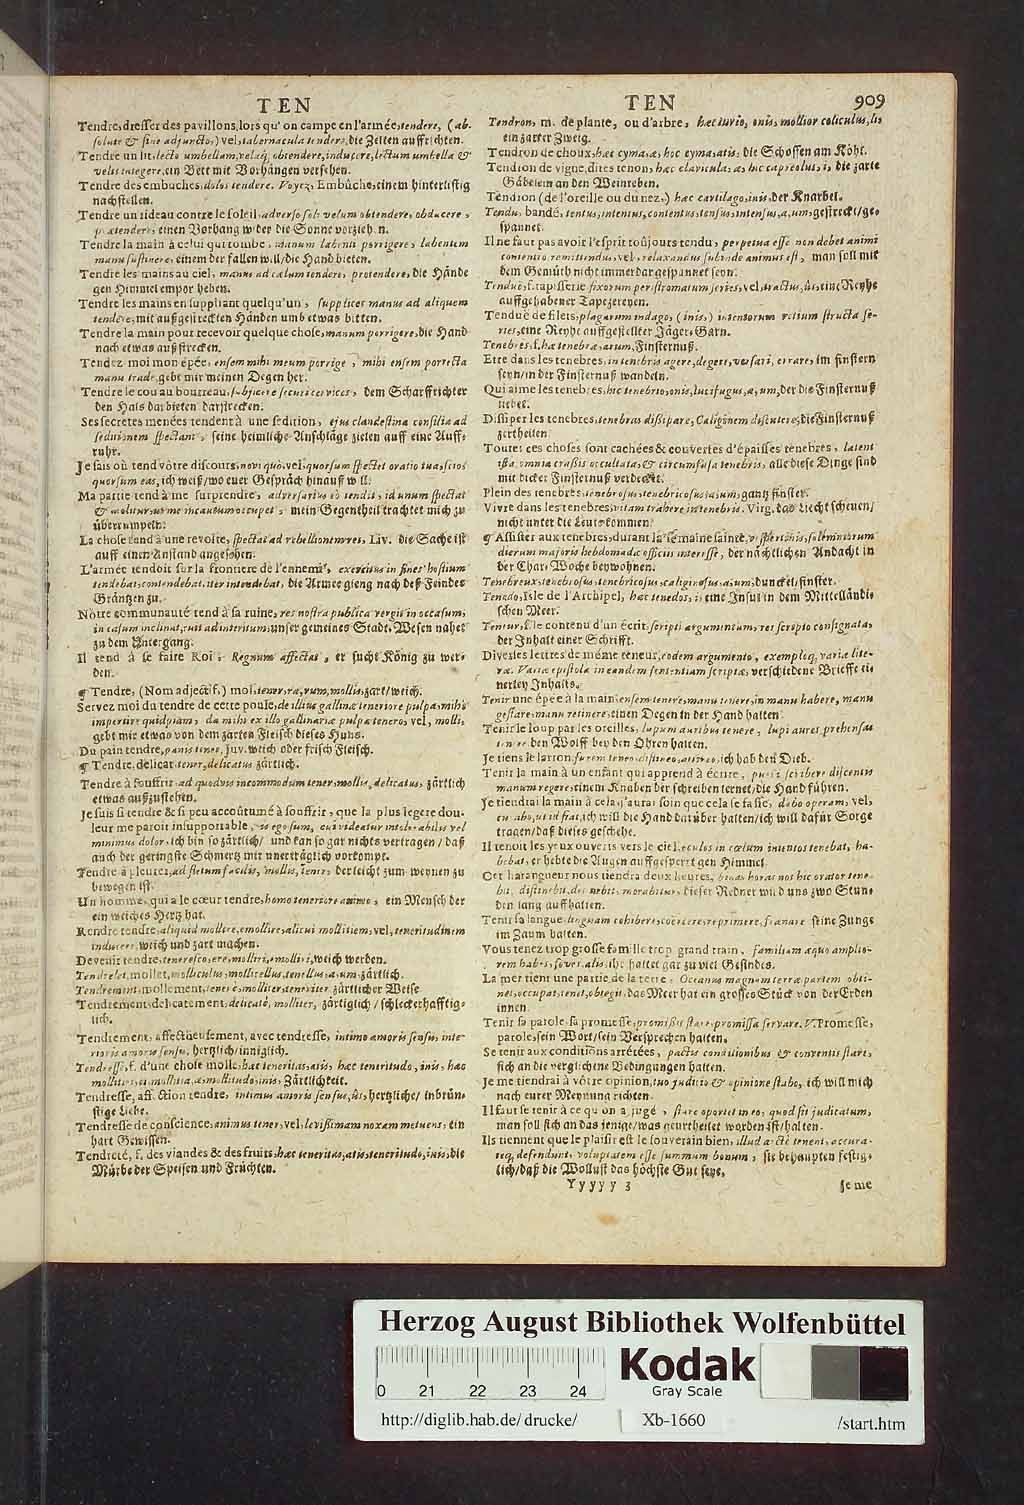 TEN
Tendre, dresser des pavillons, lors qu' on campe en l'armée, tendere, (ab-
solutè & sine adjuncto,) vel, tabernacula tendere, die Zelten auffrichten.
Tendre un lit, lecto umbellam, velaq; obtendere, inducere, lectum umbella &
velis integere, ein Bett mit Vorhängen versehen.
Tendre des embuches, dolos tendere. Voyez, Embûche, einem hinterlistig
nachstellen.
Tendre un rideau contre le soleil, adverso soli velum obtendere, obducere,
prætendere, einen Vorhang wider die Sonne vorziehen.
Tendre la main à celui qui tombe, manum labenti porrigere, labentem
manu sustinere, einem der fallen will/die Hand bieten.
Tendre les mains au ciel, manus ad cælum tendere, protendere, die Hände
gen Himmel empor heben.
Tendre les mains en suppliant quelqu'un, supplices manus ad aliquem
tendere, mit außgestreckten Händen umb etwas bitten.
Tendre la main pour recevoir quelque chose, manum porrigere, die Hand
nach etwas außstrecken.
Tendez moi mon épée, ensem mihi meum porrige, mihi ensem porrecta
manu trade, gebt mir meinen Degen her.
Tendre le cou au bourreau, subjicere securi cervices, dem Scharffrichter
den Hals darbieten darstrecken.
Ses secretes menées tendent à une sedition, ejus clandestina consilia ad
seditionem spectant, seine heimliche Anschläge zielen auff eine Auff-
ruhr.
Je sais où tend vôtre discours, novi quò, vel, quorsum spectet oratio tua, scio
quorsum eas, ich weiß/wo euer Gespräch hinauß will.
Ma partie tend à me surprendre, adversarius eò tendit, id unum spectat
& molitur, ut me incautum occupet, mein Gegentheil trachtet mich zu
überrumpeln.
La chose tend à une revolte, spectat ad rebellionem res, Liv. die Sache ist
auff einen Anstand angesehen.
L'armée tendoit sur la frontiere de l'ennemi, exercitus in fines hostium
tendebat, contendebat, iter intendebat, die Armee gieng nach deß Feindes
Gräntzen zu.
Nôtre communauté tend à sa ruine, res nostra publica vergit in occasum,
in casum inclinat, ruit ad interitum, unser gemeines Stadt-Wesen nahet
zu dem Untergang.
Il tend à se faire Roi, Regnum affectat, er sucht König zu wer-
den.
¶ Tendre, (Nom adjectif,) mol, tener, ra, rum, mollis, zart/weich.
Servez moi du tendre de cette poule, de illius gallinæ teneriore pulpa, mihi
impertire quidpiam, da mihi ex illo gallinaria pulpa tenero, vel, molli,
gebt mir etwas von dem zarten Fleisch dieses Huns.
Du pain tendre, panis tener, Juv. weich oder frisch Fleisch.
¶ Tendre, delicat, tener, delicatus zärtlich.
Tendre à souffrir, ad quodvis incommodum tener, mollis, delicatus, zärtlich
etwas außzustehen.
Je suis si tendre & si peu accoûtumé à souffrir, que la plus legere dou-
leur me paroit insupportable, is ego sum, cui videatur intolerabilis vel
minimus dolor, ich bin so zärtlich/ und kan so gar nichts vertragen/ daß
auch der geringste Schmertz mir unerträglich vorkompt.
Tendre à pleurer, ad fletum facilis, mollis, tener, der leicht zum weynen zu
bewegen ist.
Un homme, qui a le cœur tendre, homo teneriore animo, ein Mensch der
ein weiches Hertz hat.
Rendre tendre, aliquid mollire, emollire, alicui mollitiem, vel, teneritudinem
inducere, weich und zart machen.
Devenir tendre, tenerescere, molliri, emolliri, weich werden.
Tendrelet, mollet, molliculus, mollicellus, tenellus, a, um, zärtlich.
Tendrement, mollement, tenerè, molliter, teneriter, zärtlicher Weise.
Tendrement, delicatement, delicatè, molliter, zärtiglich/schleckerhafftig-
lich.
Tendrement, affectüeusement, avec tendresse, intimo amoris sensu, inte-
rioris amoris sensu, hertzlich/inniglich.
Tendresse, f. d'une chose molle, hæc teneritas, atis, hæc teneritudo, inis, hæc
mollities, ei, mollitia, æ, mollitudo, inis, Zärtlichkeit.
Tendresse, affection tendre, intimus amoris sensus, ûs, hertzliche/inbrün-
stige Liebe.
Tendresse de conscience, animus tener, vel, levissimam noxam metuens, ein
hart Gewissen.
Tendreté, f. des viandes & des fruits, hæc teneritas, atis, teneritudo, inis, die
Mürbe der Speisen und Früchten.
TEN 909
Tendron, m. de plante, ou d'arbre, hæc turio, onis, mollior coliculus, li,
ein zarter Zweig.
Tendron de choux, hæc cyma, æ, hoc cyma, atis, die Schossen am Köhl.
Tendron de vigne, dites tenon, hæc clavicula, æ, hic capreolus, i, die zarte
Gäbelein an den Weinreben.
Tendron (de l'oreille ou du nez,) hæc cartilago, inis, der Knarbel.
Tendu, bandé, tentus, intentus, contentus, tensus, intensus, a, um, gestreckt/ge-
spannet.
Il ne faut pas avoir l'esprit toûjours tendu, perpetua esse non debet animi
contentio remittendus, vel, relaxandus subinde animus est, man soll mit
dem Gemüth nicht immerdar gespannet seyn.
Tenduë, f. tapisserie fixorum peristromatum series, vel, tractus, ûs, eine Reyhe
auffgehabener Tapezereyen.
Tenduë de filets, plagarum indago, (inis,) intentorum retium structa se-
ries, eine Reyhe auffgestellter Jäger-Garn.
Tenebres, f. hæ tenebræ, arum, Finsternuß.
Etre dans les tenebres, in tenebris agere, degere, versari, errare, im finstern
seyn/in der Finsternuß wandeln.
Qui aime les tenebres, hic tenebrio, onis, lucifugus, a, um, der die Finsternuß
liebet.
Dissiper les tenebres, tenebras dissipare, Caliginem discutere, die Finsternuß
zertheilen.
Toutes ces choses sont cachées & couvertes d'épaisses tenebres, latent
ista omnia crassis occultata, & circumfusa tenebris, alle diese Dinge sind
mit dicker Finsternuß verdeckt.
Plein des tenebres, tenebrosus, tenebricosus, a, um, gantz finster.
Vivre dans les tenebres, vitam trahere in tenebris. Virg. das Liecht scheuen/
nicht unter die Leut kommen.
¶ Assister aux tenebres, durant la semaine sainte, vespertinis, solemniorum
dierum majoris hebdomadæ officiis interesse, der nächtlichen Andacht in
der Char-Woche beywohnen.
Tenebreux, tenebrosus, tenebricosus, caliginosus, a, um, dunckel/finster.
Tenedo, Isle de l'Archipel, hæc tenedos, i, eine Insul in dem Mittelländi-
schen Meer.
Teneur, f. le contenu d'un écrit, scripti argumentum, res scripto consignata,
der Inhalt einer Schrifft.
Diverses lettres de même teneur, eodem argumento, exemploq; variæ lite-
ræ. Variæ epistolæ in eandem sententiam scriptæ, verschiedene Brieffe ei-
nerley Inhalts.
Tenir une épée à la main, ensem tenere, manu tenere, in manu habere, manu
gestare, manu retinere, einen Degen in der Hand halten.
Tenir le loup par les oreilles, lupum auribus tenere, lupi aures prehensas
tenere, den Wolff bey den Ohren halten.
Je tiens le larron, furem teneo, distineo, attineo, ich hab den Dieb.
Tenir la main à un enfant qui apprend à écrire, pueri scribere discentis
manum regere, einem Knaben der schreiben lernet/die Hand führen.
Je tiendrai la main à cela, j'aurai soin que cela se fasse, dabo operam, vel,
curabo, ut id fiat, ich will die Hand darüber halten/ich will dafür Sorge
tragen/daß dieses geschehe.
Il tenoit les yeux ouverts vers le ciel, oculos in cœlum intentos tenebat, ha-
bebat, er hebte die Augen auffgesperrt gen Himmel.
Cet harangueur nous tiendra deux heures, binas horas nos hic orator tene-
bit, distinebit, detinebit, morabitur, dieser Redner wird uns zwo Stun-
den lang auffhalten.
Tenir sa langue, linguam cohibere, coërcere, reprimere, frænare seine Zunge
im Zaum halten.
Vous tenez trop grosse famille trop grand train, familiam æquo amplio-
rem habes, foves, alis, ihr haltet gar zu viel Gesindes.
La mer tient une partie de la terre, Oceanus magnam terræ partem obti-
net, occupat, tenet, obtegit, das Meer hat ein grosses Stück von der Erden
innen.
Tenir sa parole, sa promesse, promissis stare, promissa servare. V. Promesse,
parole, sein Wort/sein Versprechen halten.
Se tenir aux conditions arrêtées, pactis conditionibus & conventis stare,
sich an die verglichne Bedingungen halten.
Je me tiendrai à vôtre opinion, tuo judicio & opinione stabo, ich will mich
nach eurer Meynung richten.
Il faut se tenir à ce qu'on a jugé, stare oportet in eo, quod sit judicatum,
man soll sich an das jenige/was geurtheilet worden ist/halten.
Ils tiennent que le plaisir est le souverain bien, illud arctè tenent, accura-
teq; defendunt, voluptatem esse summum bonum, sie behaupten festig-
lich/daß die Wollust das höchste Gut seye.
Yyyyy 3 Je me
Herzog August Bibliothek Wolfenbüttel
Kodak
Gray Scale
0 21 22 23 24
http://diglib.hab.de/drucke/ Xb-1660 /start.htm